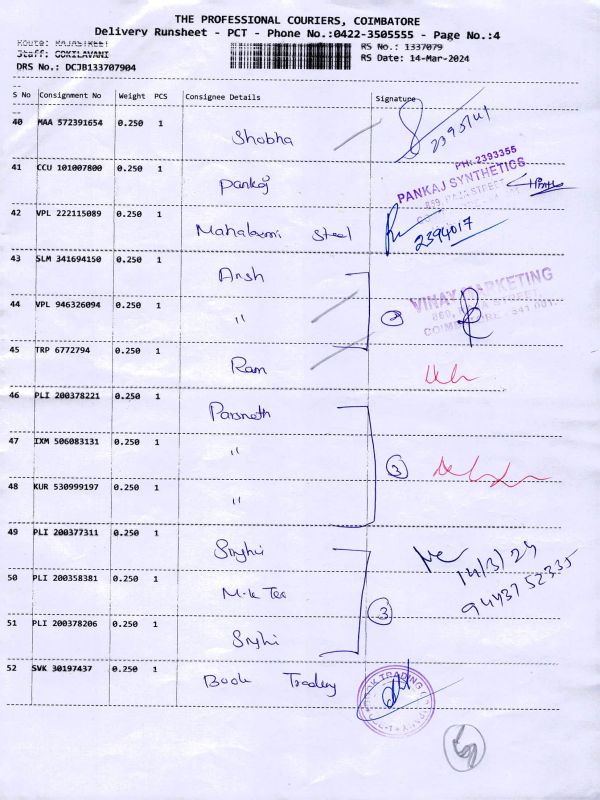 THE PROFESSIONAL COURIERS, COIMBATORE
Delivery Runsheet - PCT - Phone No.:0422-3505555 - Page No.:4
Route: RAJASTREET
Staff: GOKILAVANI
DRS No.: DCJB133707904
RS No.: 1337079
RS Date: 14-Mar-2024
S No Consignment No Weight PCS Consignee Details Signature
40 MAA 572391654 0.250 1 Shobha
41 CCU 101007800 0.250 1 Pankaj
PH: 2393355
PANKAJ SYNTHETICS
42 VPL 222115089 0.250 1 Mahalaxmi Steel 2394017
43 SLM 341694150 0.250 1 Ansh
VINAY MARKETING
44 VPL 946326094 0.250 1 "
45 TRP 6772794 0.250 1 Ram
46 PLI 200378221 0.250 1 Parsnath
47 IXM 506083131 0.250 1 " 3
48 KUR 530999197 0.250 1 "
49 PLI 200377311 0.250 1 Singhvi
14/3/24
50 PLI 200358381 0.250 1 M.K Tex
94437 52335
51 PLI 200378206 0.250 1 Singhvi
3
52 SVK 30197437 0.250 1 Book Trading